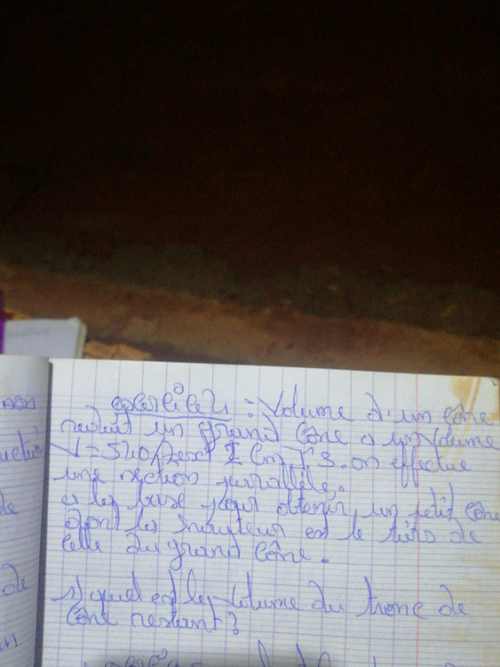 exercice : Volume d'un cône
réduit un grand cône a un volume
V = 540 cm 3. on effectue
une section parrallèle
a la base pour obtenir un petit cône
dont la hauteur est le tiers de
celle du grand cône.
1) quel est le volume du tronc de
cône restant ?